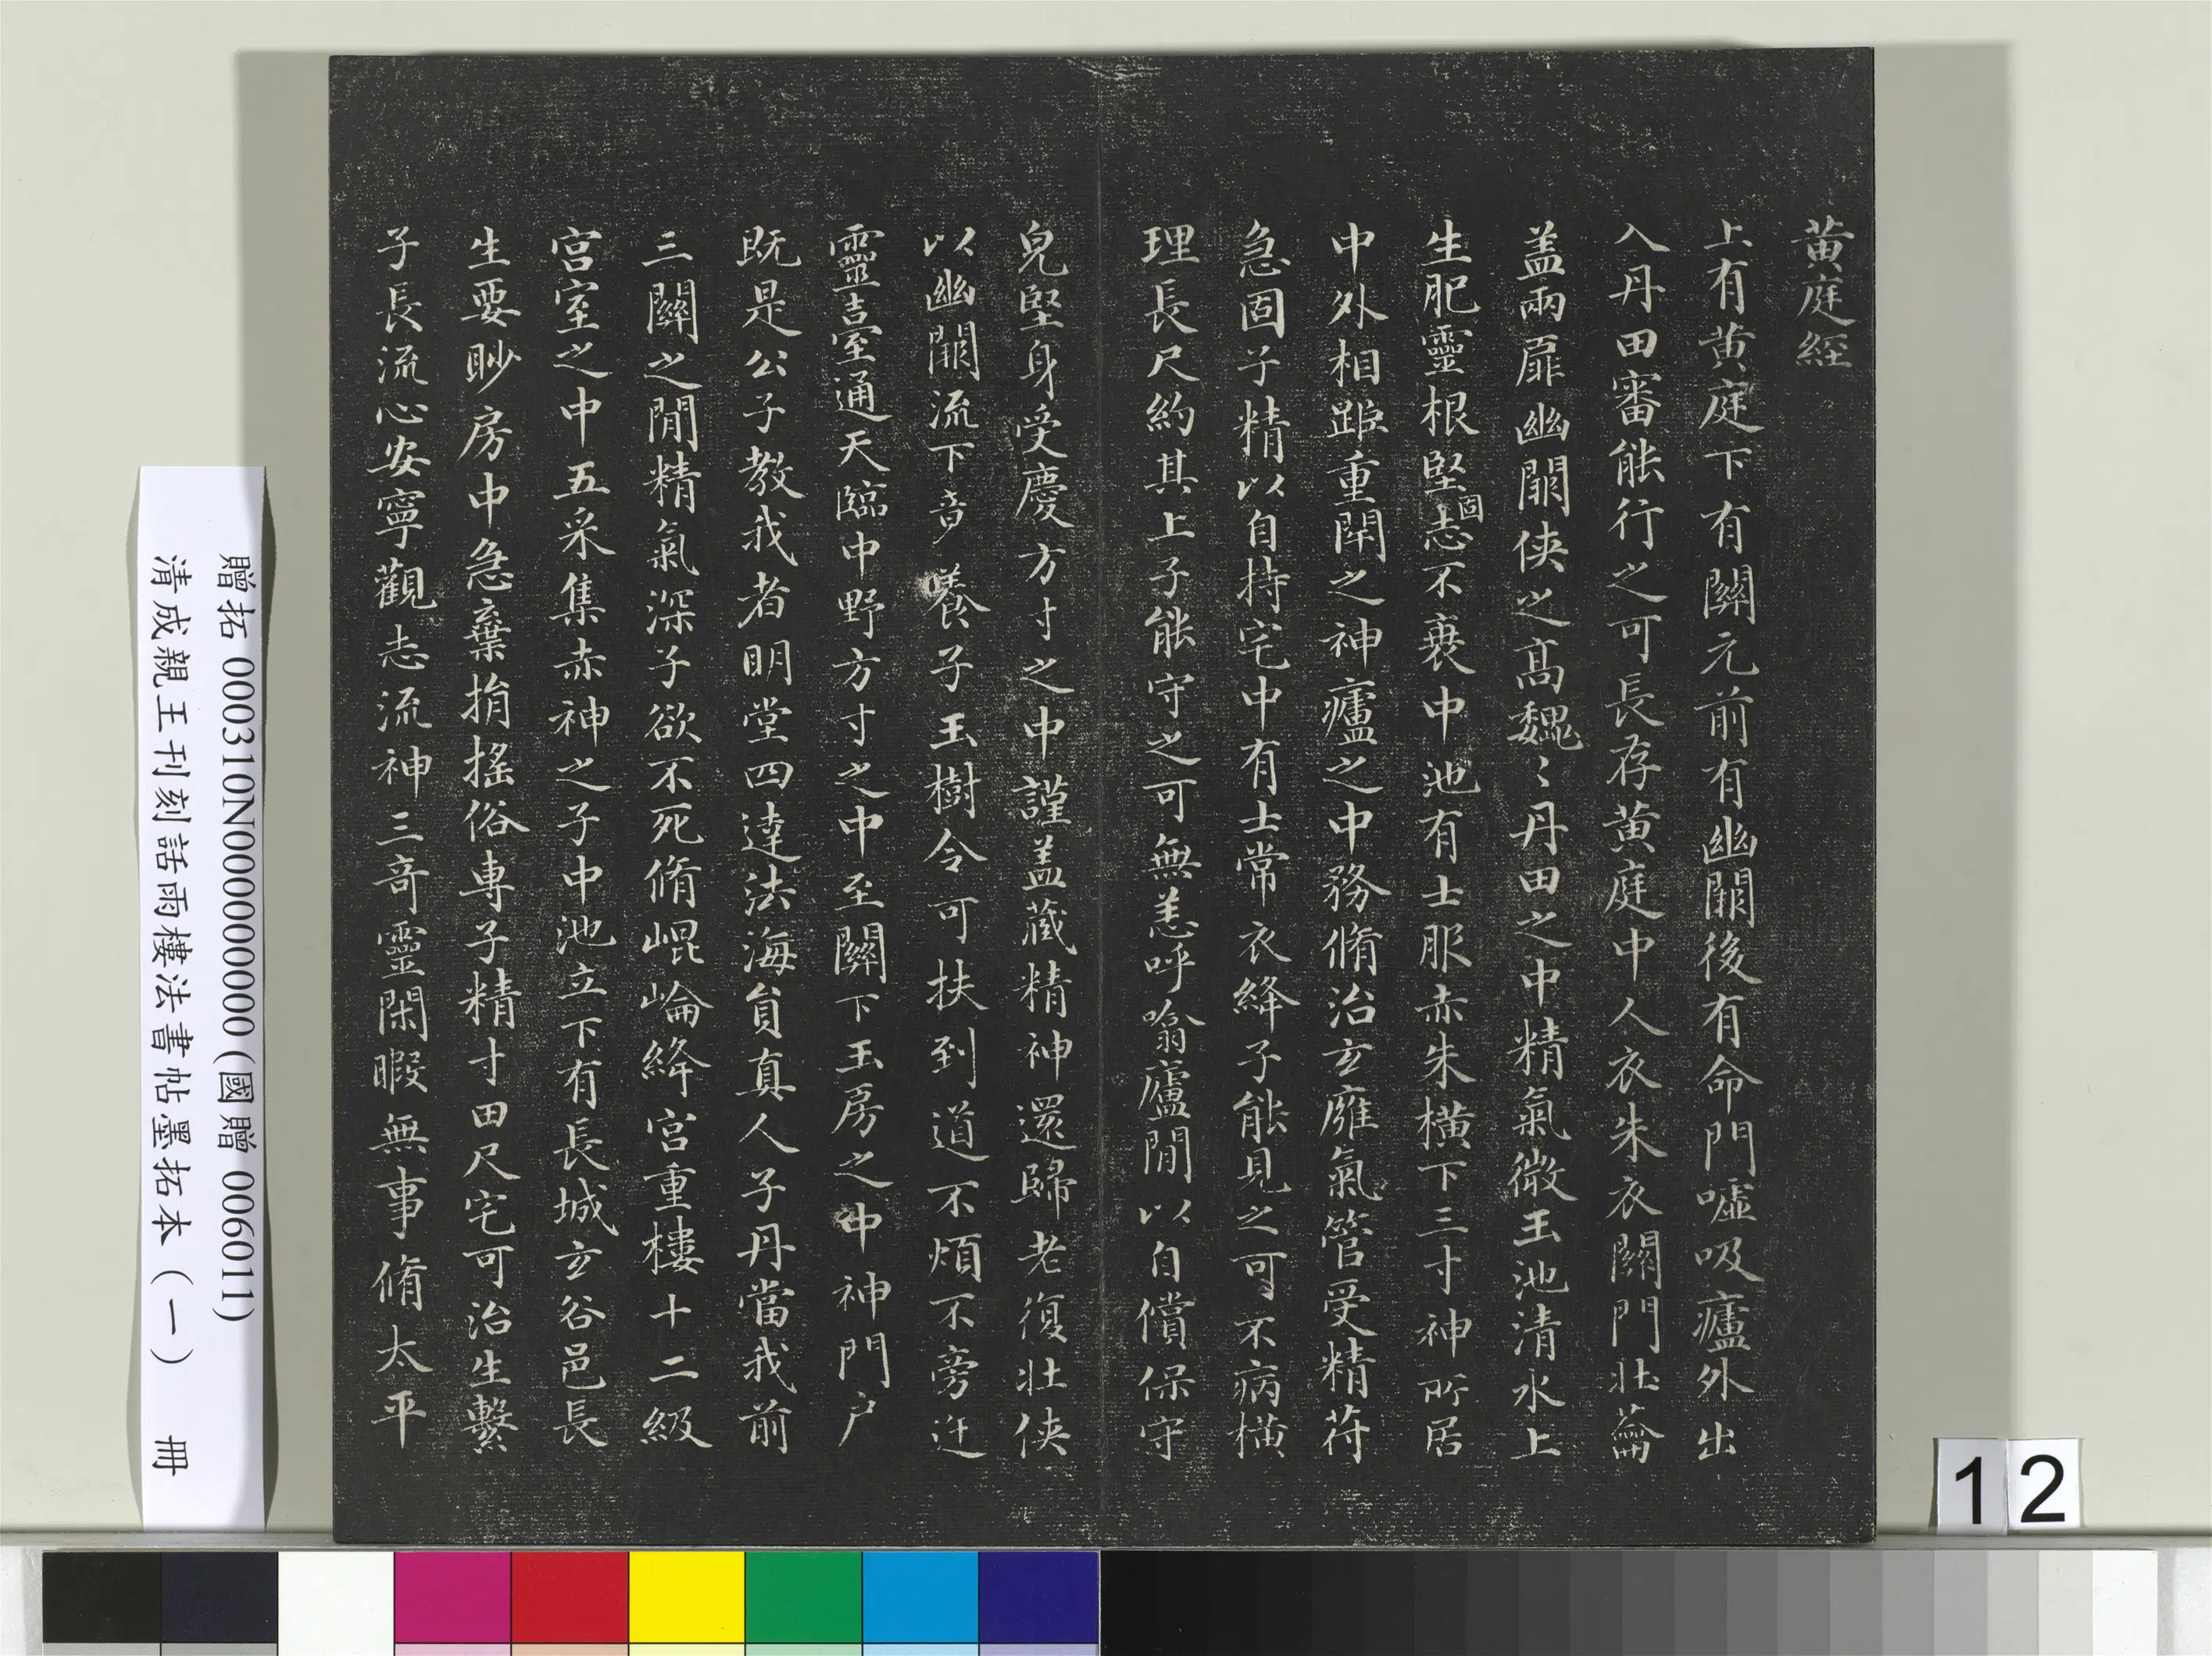 黄庭經
上有黄庭下有關元前有幽闕後有命門噓吸廬外出
入丹田審能行之可長存黄庭中人衣朱衣關門壯蘥
盖兩扉幽闕俠之高魏〻丹田之中精氣微玉池清水上
生肥靈根堅固志不衰中池有士服赤朱横下三寸神所居
中外相距重閉之神廬之中務脩治玄廱氣管受精苻
急固子精以自持宅中有士常衣絳子能見之可不病横
理長尺約其上子能守之可無恙呼噏廬間以自償保守
皃堅身受慶方寸之中謹盖藏精神還歸老復壯俠
以幽闕流下竟養子玉樹令可扶至道不煩不旁迕
靈臺通天臨中野方寸之中至關下玉房之中神門户
既是公子教我者明堂四達法海負真人子丹當我前
三關之間精氣深子欲不死脩崐崘絳宫重樓十二級
宫室之中五采集赤神之子中池立下有長城玄谷邑長
生要眇房中急棄捐摇俗專子精寸田尺宅可治生繫
子長流心安寧觀志流神三奇靈閑暇無事脩太平
贈拓 000310N000000000 (國贈 006011)
清成親王刊刻詒晉樓法書帖墨拓本（一） 冊
12